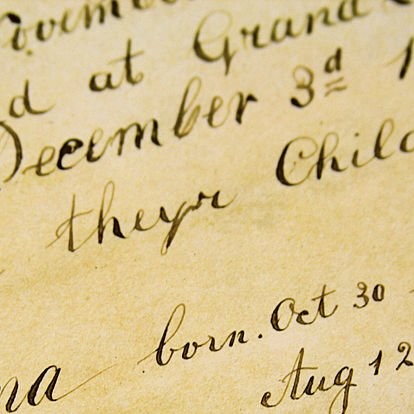 Novem
d at Grand
December 3d 1
theyr Chil
na born. Oct 30
Aug 12